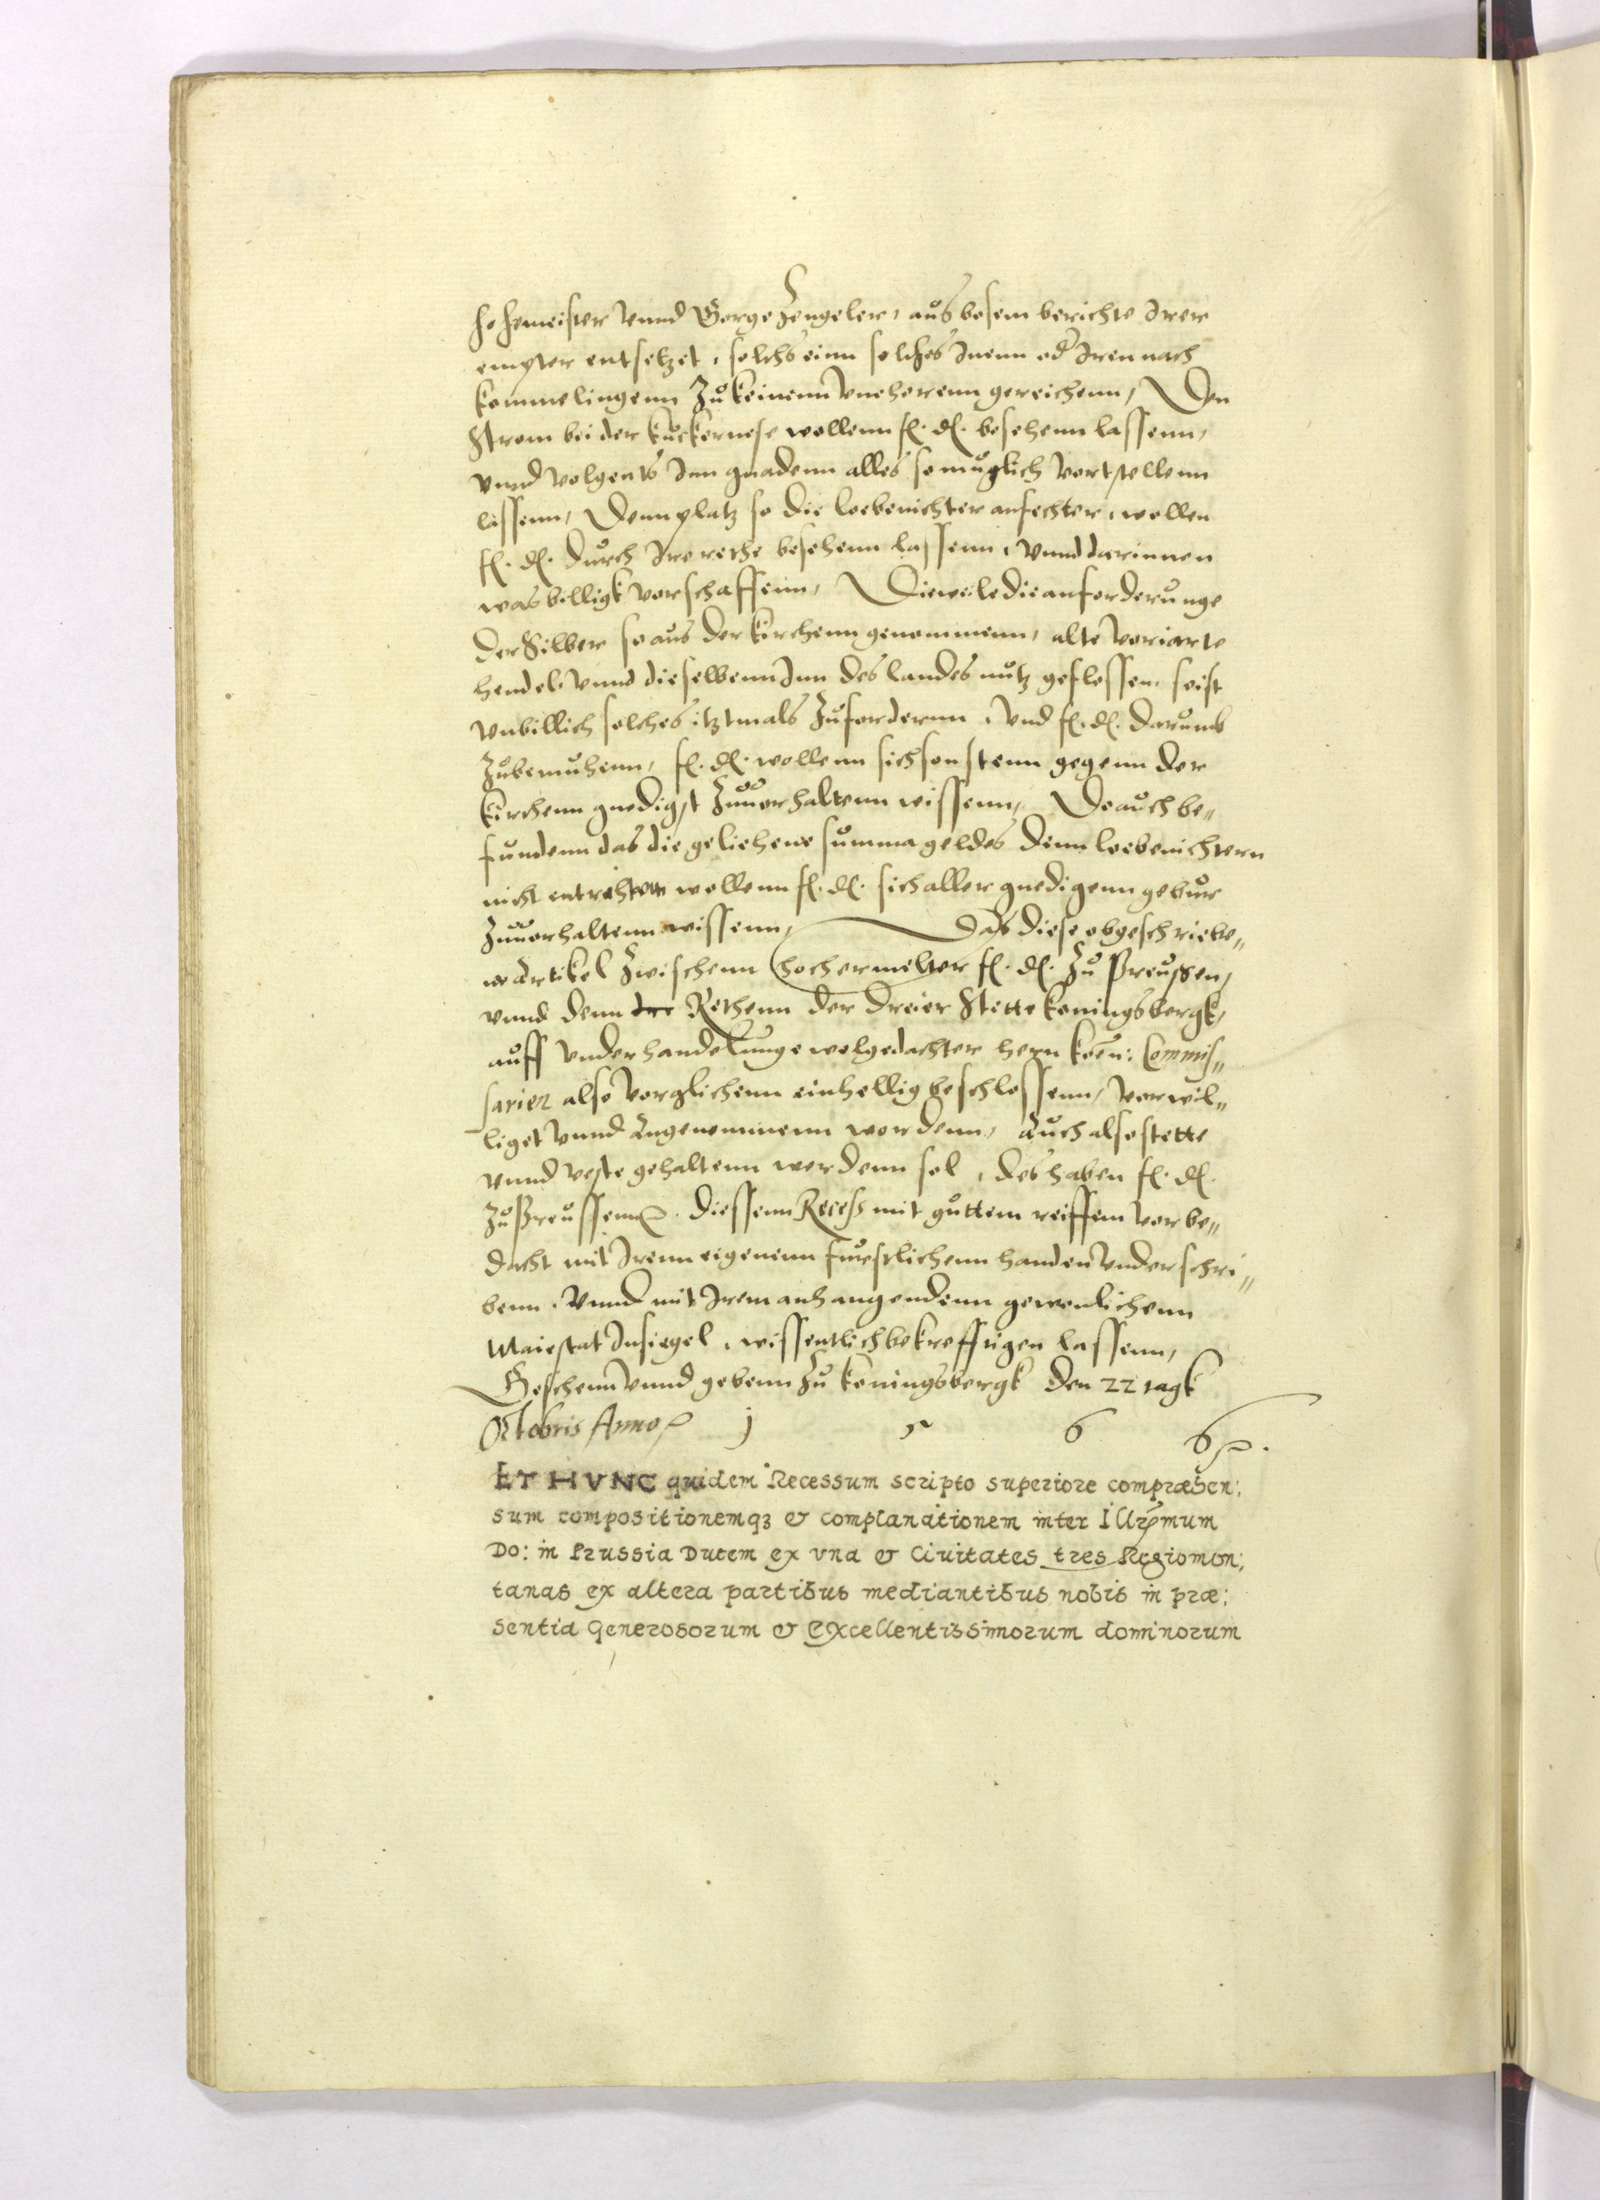 hohemeister vnnd George Zengeler, aus bosem berichte irer
empter entsetzet, solchs einn solches inenn od iren nach
kommelingenn zu keinenn vneherenn gereichenn, Den
Strom bei der Kuckernese wollenn fl. dl. besehenn lassenn,
vnnd volgents inn gnadenn alles so muglich vortstellenn
lassenn, Denn platz so die loebenichter anfechter, wollen
fl. dl. durch ire rethe besehenn lassenn, vnnd darinnen
was billigk vorschaffenn, Dieweile die anforderunge
der Silber so aus der kirchenn genommenn, alte voriarte
hendel, vnnd dieselbenn inn des landes nutz geflossen, so ist
vnbillich solches itztmals zufordernn, vnd fl. dl. darumb
zubemuhenn, fl. dl. wollenn sich sonstenn gegenn der
kirchenn gnedigst zuuorhaltenn wissenn, Do auch be„
fundenn das die geliehene summa geldes denn loebenichtern
nicht entrichtet wollenn fl. dl. sich aller gnedigenn gebur
zuuorhaltenn wissenn, Das diese obgeschriebe„
ne Artikel zwischenn hochermelter fl. dl. zu Preussen,
vnnd denn der Rethenn der dreier Stette Koningsbergk,
auff vnderhandelunge wolgedachter hern Koen: Commis„
sarien also vorglichenn einhellig beschlossenn, vorwil„
liget vnnd angenommenn wordenn, auch also stette
vnnd veste gehaltenn werdenn sol, des haben fl. dl.
zu Preussenn. diessenn Recess mit guttem reiffem vorbe„
dacht mit irenn eigenenn furstlichenn handen vnderschri„
benn, vnnd mit irem anhangendenn gewonlichenn
Maiestat insiegel, wissentlich bekrefftigen lassenn,
Geschenn vnnd gebenn zu Koningsbergk den 22 tagk
Octobris Anno 1 5 6 6.
ET HVNC quidem Recessum scripto superiore compræhen:
sum compositionemq3 & complanationem inter Illr̃mum
Do: in Prussia Ducem ex vna & Ciuitates tres Regiomon:
tanas ex altera partibus mediantibus nobis in præ:
sentia Generosorum & Excellentissimorum dominorum